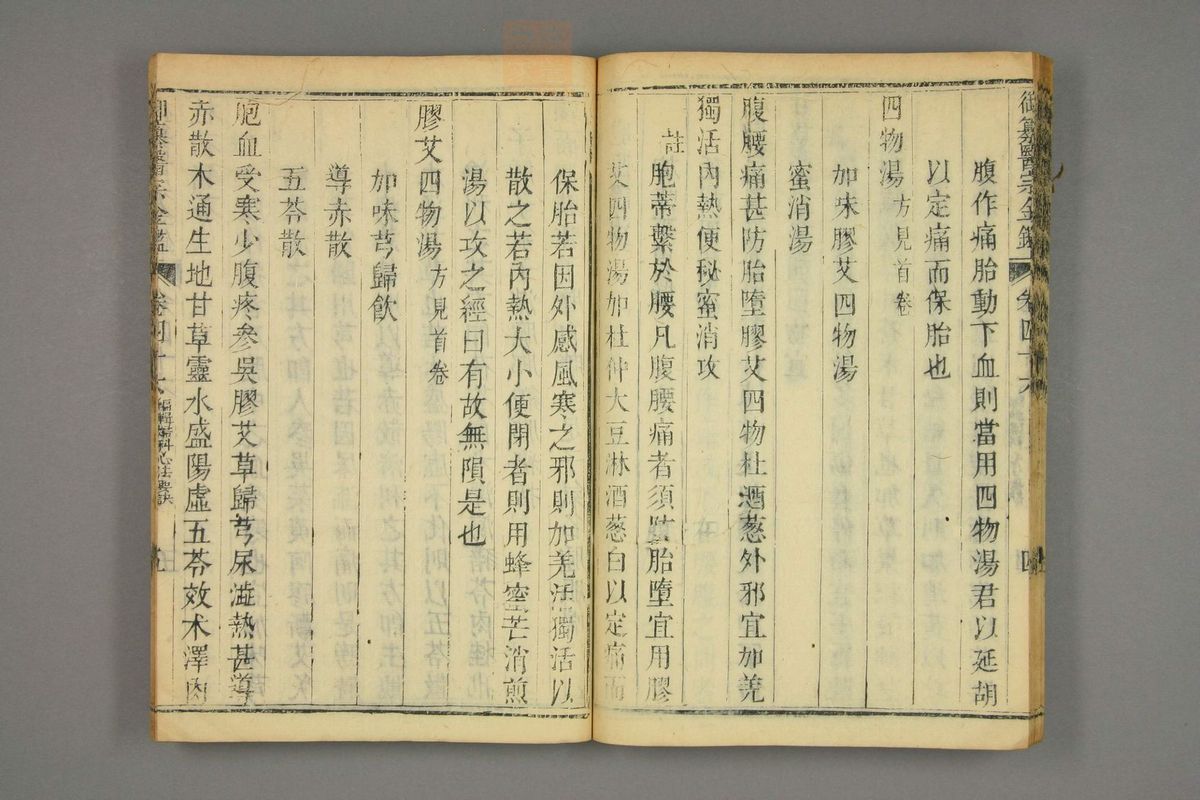 御纂醫宗金鑑 卷四十六 四
腹作痛胎動下血則當用四物湯君以延胡
以定痛而保胎也
四物湯方見首卷
加味膠艾四物湯
蜜消湯
腹腰痛甚防胎墮膠艾四物杜酒蔥外邪宜加羌
獨活內熱便秘蜜消攻
註 胞蒂繫於腰凡腹腰痛者須防胎墮宜用膠
艾四物湯加杜仲大豆淋酒蔥白以定痛而
保胎若因外感風寒之邪則加羌活獨活以
散之若內熱大小便閉者則用蜂蜜芒消煎
湯以攻之經曰有故無隕是也
膠艾四物湯方見首卷
加味芎歸飲
導赤散
五苓散
胞血受寒少腹疼參吳膠艾草歸芎尿澁熱甚導
赤散木通生地甘草靈水盛陽虛五苓效术澤肉
御纂醫宗金鑑 卷四十六 編輯婦科心法要訣 五